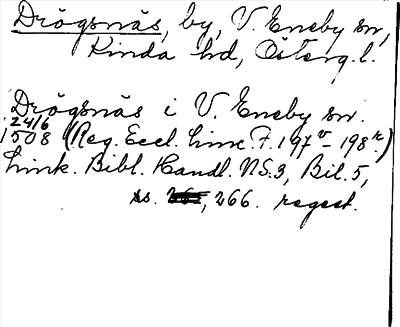 Drögsnäs, by, V. Eneby sn,
Kinda hd, Österg. l.
Drögsnäs i V. Eneby sn.
24/6
1508 (Reg. Eccl. Linc. F. 197v-198r.)
Link. Bibl. Handl. N.S. 3, Bil. 5,
ss. 266. regest.